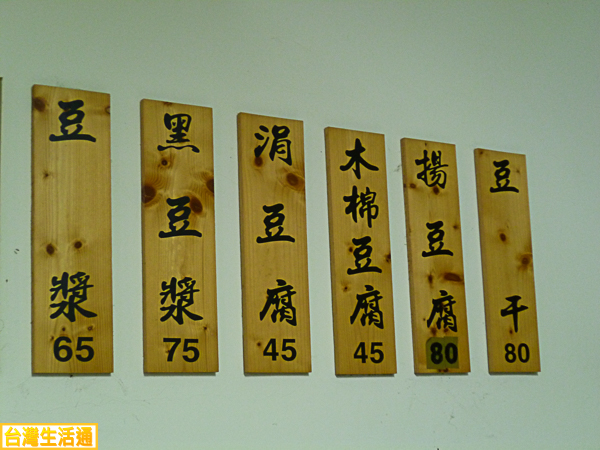 豆漿
65
黑豆漿
75
涓豆腐
45
木棉豆腐
45
揚豆腐
80
豆干
80
台灣生活通